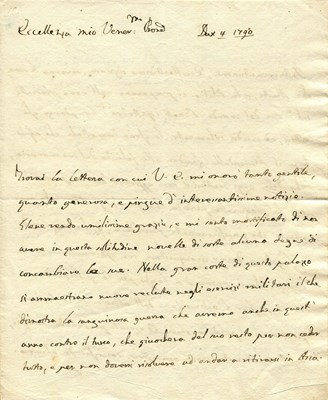 Eccellenza mio Vener.mo Prone Dux 4 1790
Trovai la lettera con cui V. E. mi onorò tanto gentile,
quanto generosa, e pingue d'interessantissime notizie.
Glene rendo umilissime grazie, e mi sento mortificato di non
avere in questa solitudine novelle di sorta alcuna degne di
concambiare le sue. Nella gran corte di questo palazzo
si ammaestrano nuove reclute negli esercizi militari il che
dimostra la sanguinosa guerra che avremo anche in quest'
anno contro il turco, che giuocherà del suo resto per non ceder
tutto, e per non doversi risolvere ad andar a ritirarsi in Asia.